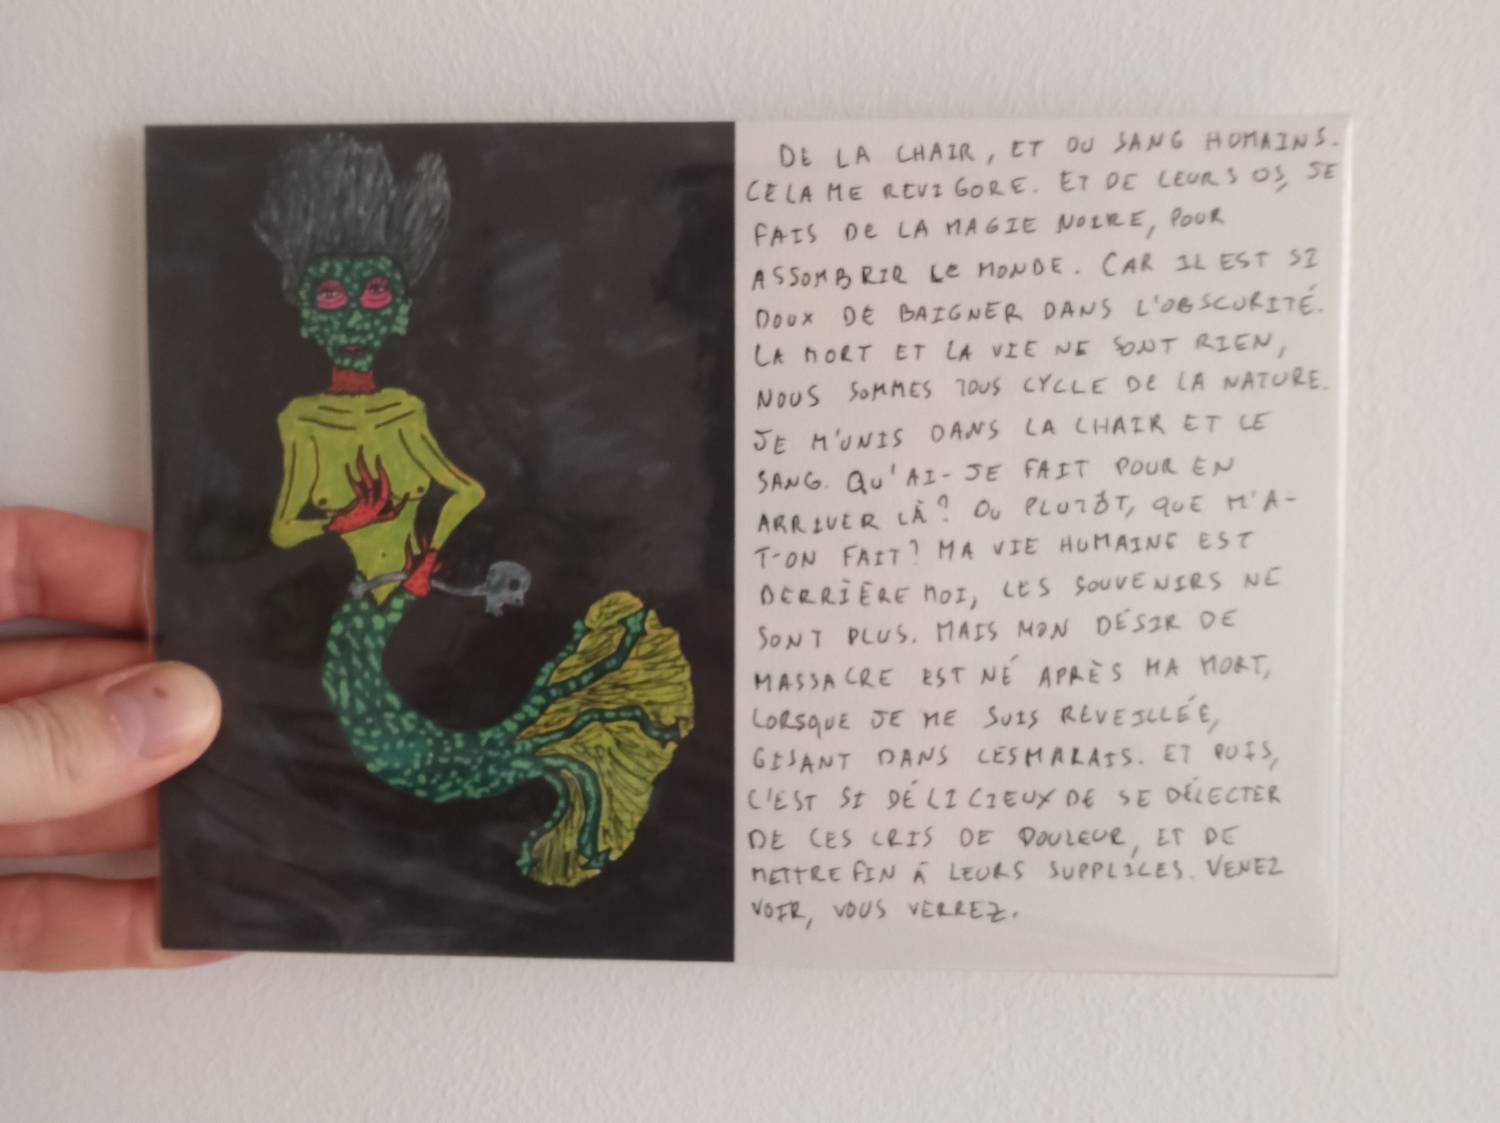 DE LA CHAIR, ET DU SANG HUMAINS.
CELA ME REVIGORE. ET DE LEURS OS, JE
FAIS DE LA MAGIE NOIRE, POUR
ASSOMBRIR LE MONDE. CAR IL EST SI
DOUX DE BAIGNER DANS L'OBSCURITÉ.
LA MORT ET LA VIE NE SONT RIEN,
NOUS SOMMES TOUS CYCLE DE LA NATURE.
JE M'UNIS DANS LA CHAIR ET LE
SANG. QU'AI-JE FAIT POUR EN
ARRIVER LÀ? OU PLUTÔT, QUE M'A-
T-ON FAIT? MA VIE HUMAINE EST
DERRIÈRE MOI, LES SOUVENIRS NE
SONT PLUS. MAIS MON DÉSIR DE
MASSACRE EST NÉ APRÈS MA MORT,
LORSQUE JE ME SUIS RÉVEILLÉE,
GISANT DANS LES MARAIS. ET PUIS,
C'EST SI DÉLICIEUX DE SE DÉLECTER
DE CES CRIS DE DOULEUR, ET DE
METTRE FIN À LEURS SUPPLICES. VENEZ
VOIR, VOUS VERREZ.